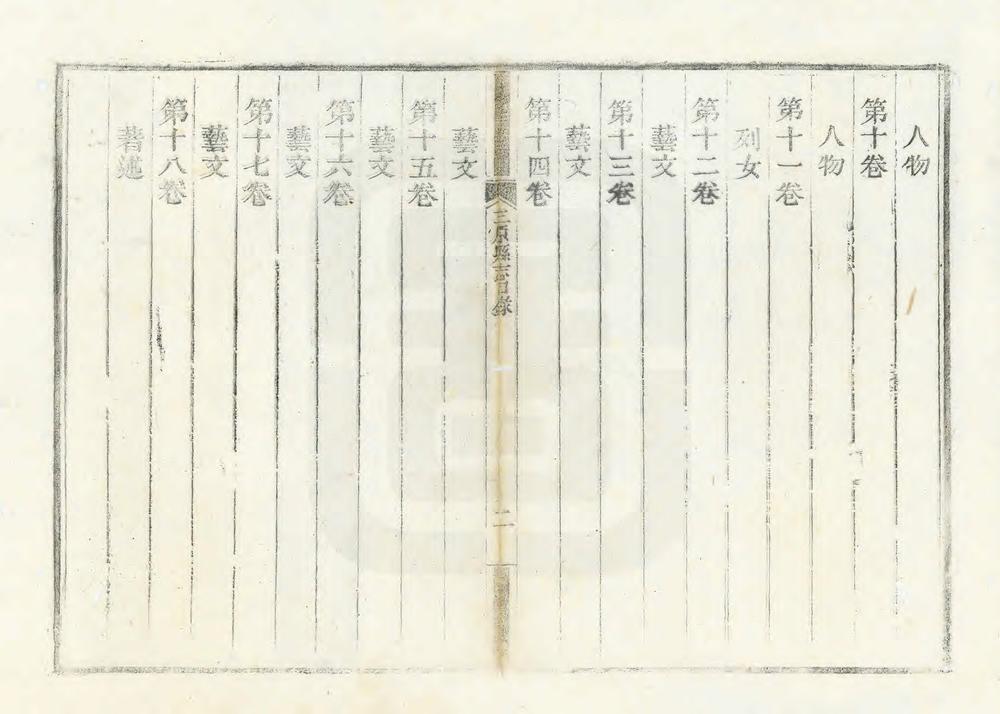 人物
第十卷
人物
第十一卷
列女
第十二卷
藝文
第十三卷
藝文
第十四卷
三原縣志目錄
二
藝文
第十五卷
藝文
第十六卷
藝文
第十七卷
藝文
第十八卷
著述